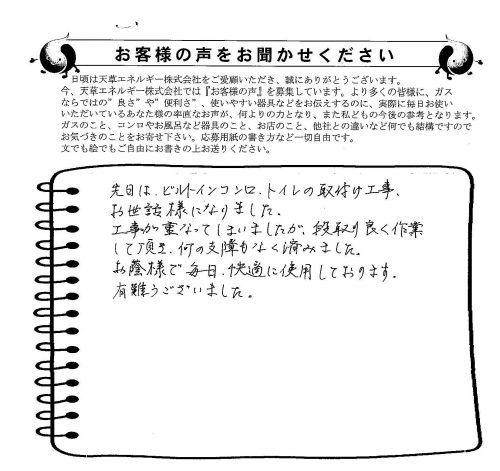 お客様の声をお聞かせください
日頃は天草エネルギー株式会社をご愛顧いただき、誠にありがとうございます。
今、天草エネルギー株式会社では『お客様の声』を募集しています。より多くの皆様に、ガス
ならではの”良さ”や”便利さ”、使いやすい器具などをお伝えするのに、実際に毎日お使い
いただいているあなた様の率直なお声が、何よりの力となり、また私どもの今後の参考となります。
ガスのこと、コンロやお風呂など器具のこと、お店のこと、他社との違いなど何でも結構ですので
お気づきのことをお寄せ下さい。応募用紙の書き方など一切自由です。
文でも絵でもご自由にお書きの上お送りください。
先日は、ビルトインコンロ、トイレの取付け工事、
お世話様になりました。
工事が重なってしまいましたが、段取り良く作業
して頂き、何の支障もなく済みました。
お蔭様で毎日、快適に使用しております。
有難うございました。